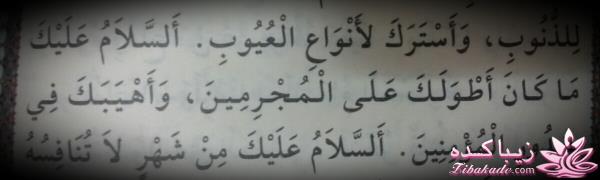 لِلذُّنُوبِ، وَأَسْتَرَكَ لأَنْوَاعِ الْعُيُوبِ. أَلسَّلاَمُ عَلَيْكَ
مَا كَانَ أَطْوَلَكَ عَلَى الْمُجْرِمِينَ، وَأَهْيَبَكَ فِي
الْمُؤْمِنِينَ. أَلسَّلاَمُ عَلَيْكَ مِنْ شَهْرٍ لاَ تُنَافِسُهُ
زیباکده
Zibakade.com